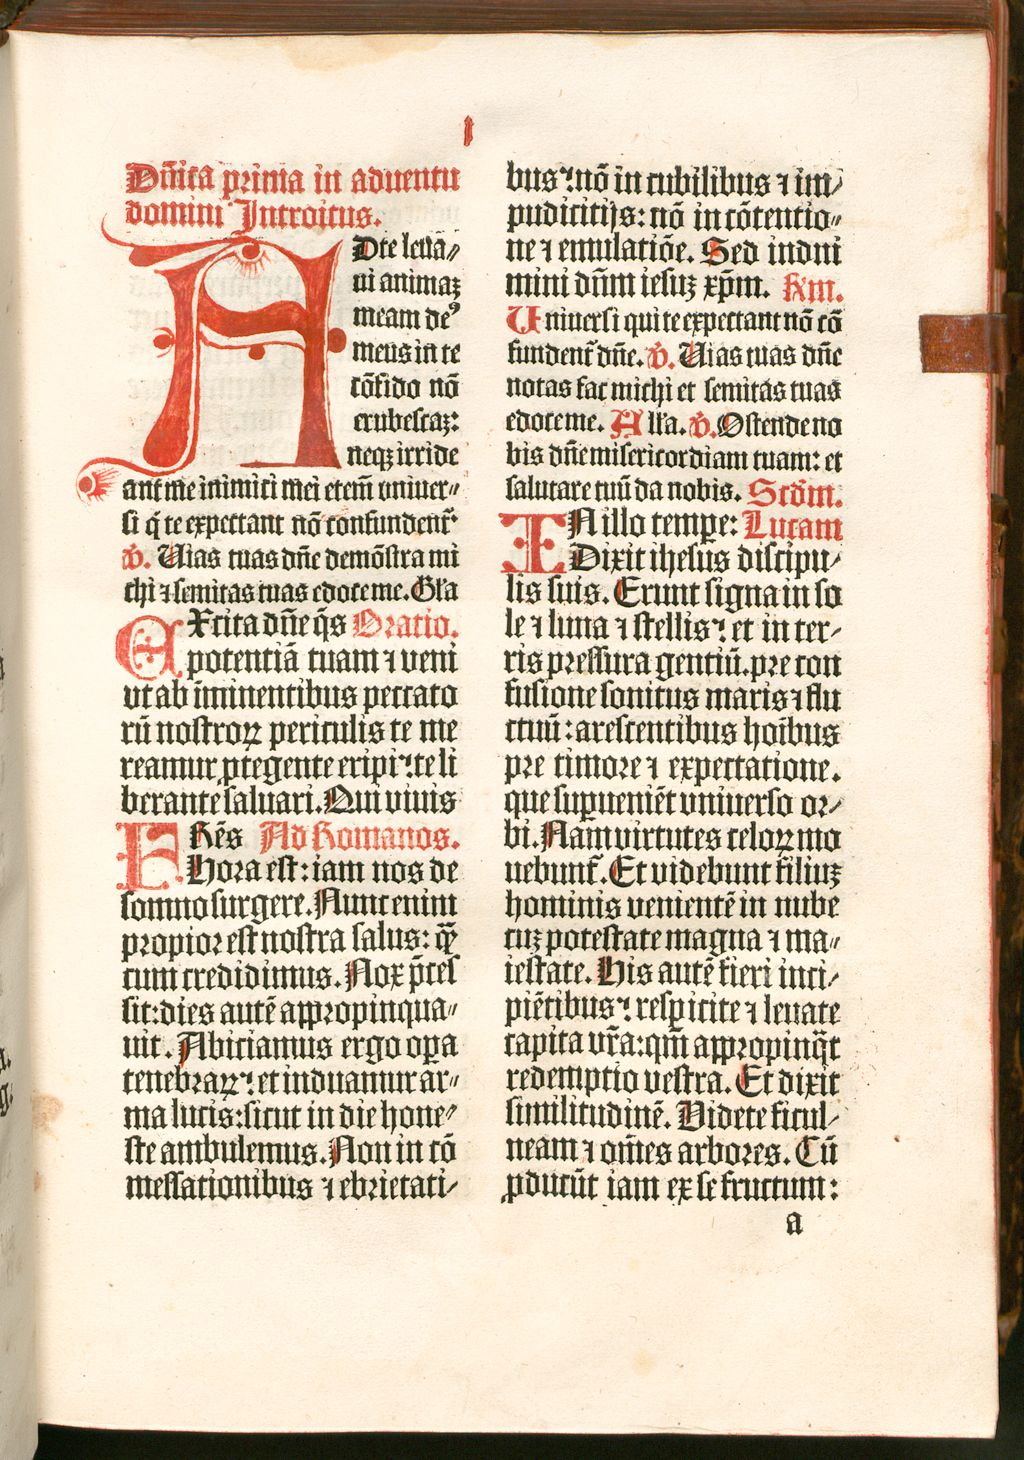 I
Dñica prima in aduentu
domini Introitus.
ADte leua⸗
ui animaꝫ
meam deꝰ
meus in te
cõfido nõ
erubescaꝫ:
neqꝫ irride
ant me inimici mei etem̃ vniuer⸗
si q̃ te expectant nõ confundent᷑
℣. Uias tuas dñe demõstra mi
chi ⁊ semitas tuas edoce me. Gl'a
EXcita dñe q̃s Oratio.
potentiã tuam ⁊ veni
vt ab ĩminentibus peccato
rũ nostroꝝ periculis te me
reamur ꝓtegente eripi: te li
berante saluari. Qui viuis
FRẽs Ad Romanos.
Hora est: iam nos de
somno surgere. Nunc enim
propior est nostra salus: q̃
cum credidimus. Nox p̃ces
sit: dies autẽ appropinqua⸗
uit. Abiciamus ergo oꝑa
tenebraꝝ: et induamur ar⸗
ma lucis: sicut in die hone⸗
ste ambulemus. Non in cõ
messationibus ⁊ ebrietati⸗
bus: nõ in cubilibus ⁊ im⸗
pudicitijs: nõ in cõtentio⸗
ne ⁊ emulatiõe. Sed indui
mini dñm iesuꝫ xp̃m. Rm.
Uniuersi qui te expectant nõ cõ
fundent᷑ dñe. ℣. Uias tuas dñe
notas fac michi et semitas tuas
edoce me. All'a. ℣. Ostende no
bis dñe misericordiam tuam: et
salutare tuũ da nobis. Scdm̃.
IN illo tempe: Lucam
Dixit ihesus discipu⸗
lis suis. Erunt signa in so
le ⁊ luna ⁊ stellis: et in ter⸗
ris pressura gentiũ. pre con
fusione sonitus maris ⁊ flu
ctuũ: arescentibus hoĩbus
pre timore ⁊ expectatione.
que suꝑueniẽt vniuerso or⸗
bi. Nam virtutes celoꝝ mo
uebunt᷑. Et videbunt filiuꝫ
hominis venientẽ in nube
cuꝫ potestate magna ⁊ ma⸗
iestate. His autẽ fieri inci⸗
piẽtibus: respicite ⁊ leuate
capita vr̃a: qm̃ appropinq̃t
redemptio vestra. Et dixit
similitudinẽ. Videte ficul⸗
neam ⁊ om̃es arbores. Cũ
ꝓducũt iam ex se fructum:
a